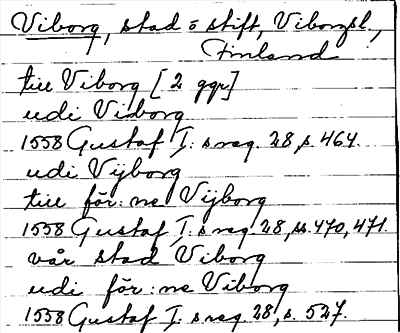 Viborg, stad o stift, Viborgsl.,
Finland
till Viborg [2 ggr]
udi Viborg
1558 Gustaf I: s reg. 28, s. 464.
udi Vijborg
till för: ne Vijborg
1558 Gustaf I: s reg. 28, ss. 470, 471.
vår stad Viborg
udi för: ne Viborg
1558 Gustaf I: s reg. 28, s. 527.